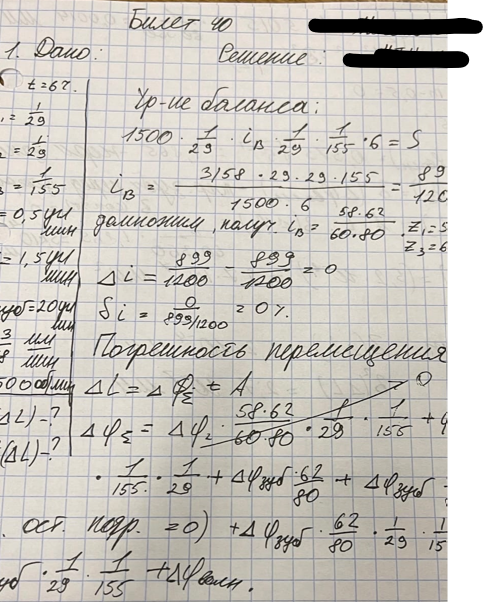 Билет 40
1. Дано:
Решение:
t = 6%.
1/29
1/29
1/155
= 0,5 угл мин
= 1,5 угл мин
зуб = 20 угл мин
3/8 мм мин
5000 об/мин
ΔL) - ?
(ΔL) - ?
Ур-ие баланса:
1500 · 1/29 · i_B · 1/29 · 1/155 · 6 = S
i_B = 3/158 · 29 · 29 · 155 / 1500 · 6 = 89 / 120
домножим, получ. i_B = 58·62 / 60·80 . Z₁=5
Z₃=6
Δi = 899/1200 - 899/1200 = 0
δi = 0 / 899/1200 = 0%.
Погрешность перемещения
ΔL = Δφ_Σ t A
0
Δφ_Σ = Δφ₂ · 58·62/60·80 · 1/29 · 1/155 +
· 1/155 · 1/29 + Δφзуб · 62/80 + Δφзуб
. ост. подр. = 0) + Δφзуб · 62/80 · 1/29 · 1/15
зуб · 1/29 · 1/155 + Δφволн.